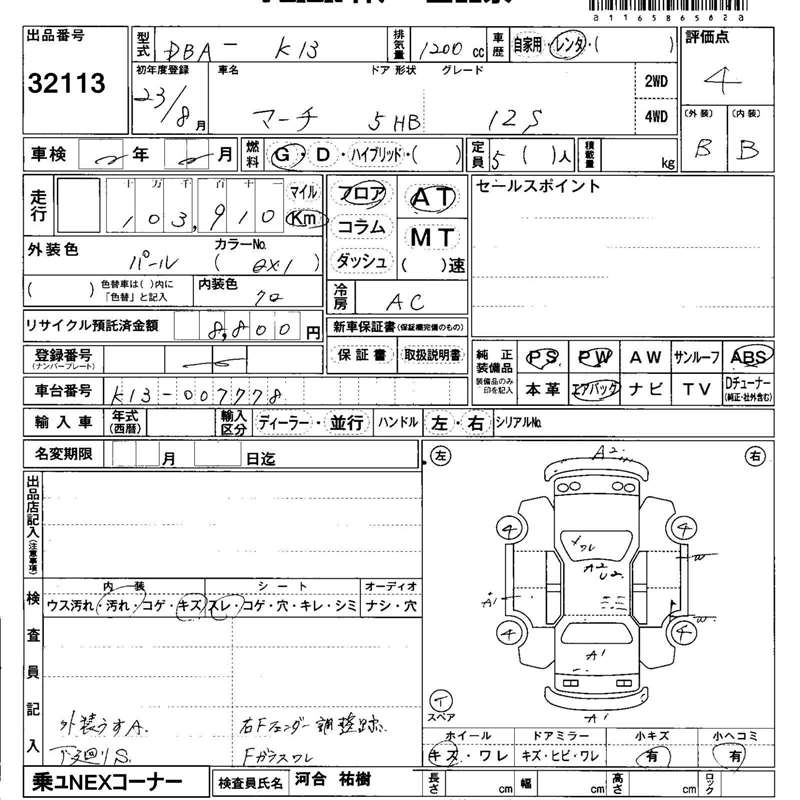 a1165865862a
出品番号
32113
型式 DBA - K13
排気量 1200 cc
車歴 自家用・レンタ・( )
評価点
4
初年度登録 23/8 月
車名 マーチ
ドア 形状 5HB
グレード 12S
2WD
4WD
(外装) B
(内装) B
車検 年 月
燃料 G・D・ハイブリッド・( )
定員 5 ( )人
積載量 kg
走行
十 万 千 百 十 一
103,910
マイル
Km
フロア
コラム
ダッシュ
AT
MT
( )速
セールスポイント
外装色 パール
カラーNo.
( QX1 )
( ) 色替車は( )内に「色替」と記入
内装色 クロ
冷房 AC
リサイクル預託済金額 8,800 円
新車保証書(保証欄完備のもの)
保証書 取扱説明書
登録番号
(ナンバープレート)
純正装備品
装備品のみ印を記入
PS PW AW サンルーフ ABS
本革 エアバック ナビ TV Dチューナー
(純正・社外含む)
車台番号 K13-007778
輸入車 年式(西暦) 輸入区分 ディーラー・並行 ハンドル 左・右 シリアルNo.
名変期限 月 日迄
出品店記入(注意事項)
左 右
A2
4 4
ワレ
A2
U2
W
A1
4 4
W
A1
スペア
A1
検査員記入
内装 シート オーディオ
ウス汚れ・汚れ・コゲ・キズ スレ・コゲ・穴・キレ・シミ ナシ・穴
外装うすA.
下廻りS.
右Fフェンダー調整跡.
Fガラスワレ
ホイール ドアミラー 小キズ 小ヘコミ
キズ・ワレ キズ・ヒビ・ワレ 有 有
乗ュNEXコーナー
検査員氏名 河合 祐樹
長さ cm 幅 cm 高さ cm ロック